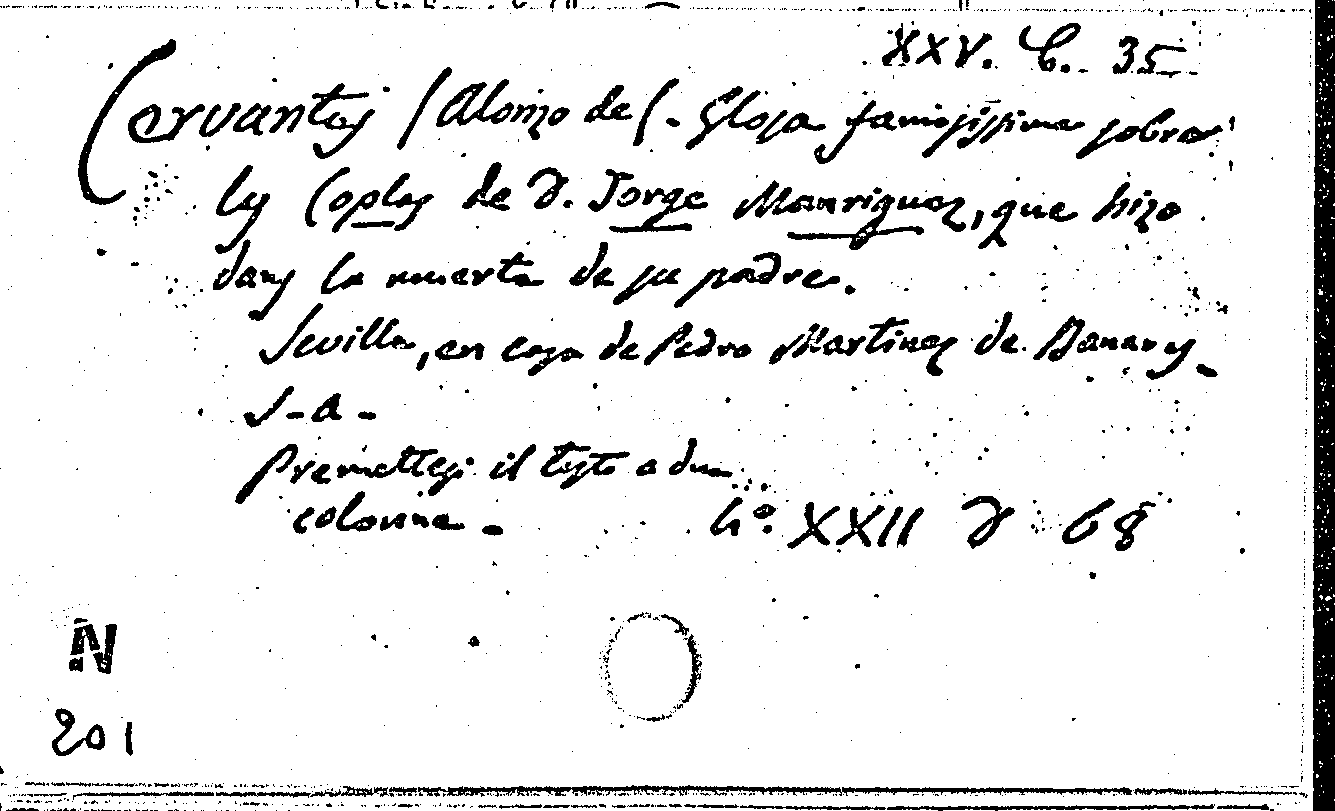 XXV. C. 35
Cervantes (Alonzo de). Glosa famosissima sobra
las Coplas de D. Jorge Manriguez, que hizo
la muerte de su padre.
Sevilla, en casa de Pedro Martinez de Banares.
S-a-
Premettesi il testo a due
colonne.
4º. XXII D 68
N
201